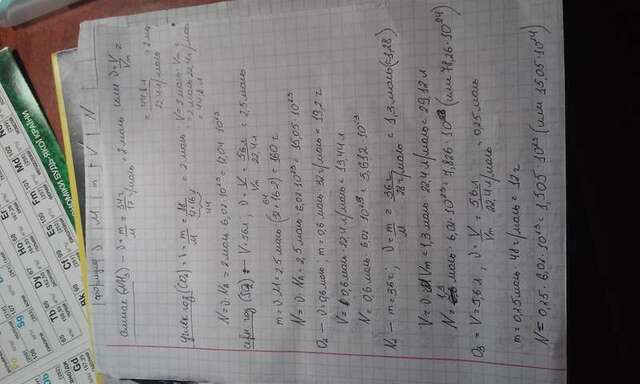 65 Tb 66 Dy 67 Ho 68 Er
98 Cf 99 Es 100 Fm 101 Md 102 No
ЕКОНОМІКИ БУДЬ-ЯКОЇ КРАЇНИ
формула | ν | M | m | V | N
аммиак (NH₃) – ν = m/M = 34г/17 г/моль = 2 моль или ν = V/Vm =
= 44,8 л/22,4 л/моль = 2 моль
(CO₂) = ν = m/M = 88/12+16·2 = 2 моль. V = 2 моль · Vm =
44
= 2 моль · 22,4 л/моль =
= 44,8 л
N = ν · Na = 2 моль · 6,02 · 10²³ = 12,04 · 10²³
(SO₂) V = 56л, ν = V/Vm = 56л/22,4 = 2,5 моль
m = ν · M = 2,5 моль · (32+16·2) = 160 г
64
N = ν · Na = 2,5 моль · 6,02 · 10²³ = 15,05 · 10²³
O₂ – ν = 0,6 моль; m = 0,6 моль · 32 г/моль = 19,2 г
V = 0,6 моль · 22,4 л/моль = 13,44 л
N = 0,6 моль · 6,02 · 10²³ = 3,612 · 10²³
N₂ – m = 36 г; ν = m/M = 36г/28 г/моль = 1,3 моль (=1,28)
V = ν · Vm = 1,3 моль · 22,4 л/моль = 29,12 л
N = 1,3 моль · 6,02 · 10²³ = 7,826 · 10²³ (или 78,26 · 10²⁴)
O₃ = V = 5,6 л, ν = V/Vm = 5,6 л/22,4 л/моль = 0,25 моль
m = 0,25 моль · 48 г/моль = 12 г
N = 0,25 · 6,02 · 10²³ = 1,505 · 10²³ (или 15,05 · 10²⁴)